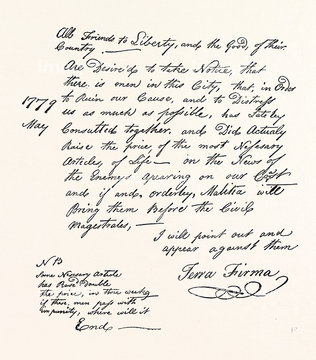 All Friends to Liberty, and the Good, of their
Country.
Are Desire'd to take Notice, that
there is men in this City, that, in Order
to Ruin our Cause, and to Distress
us as much as possible, has Lately
Consulted together. and Did Actualy
Raise the price of the most Nessasary
Articles, of Life— on the News of
the Enemys apearing on our Cost
and if and. orderley, Malitia will
Bring them Before the Civil
Magestrates,—
1779
May
I will point out and
appear against them
Terra Firma
NB
Some Nessasary Article
has Rased Double
the price, in three weeks
if these men pass with
impunity, where will it
End—